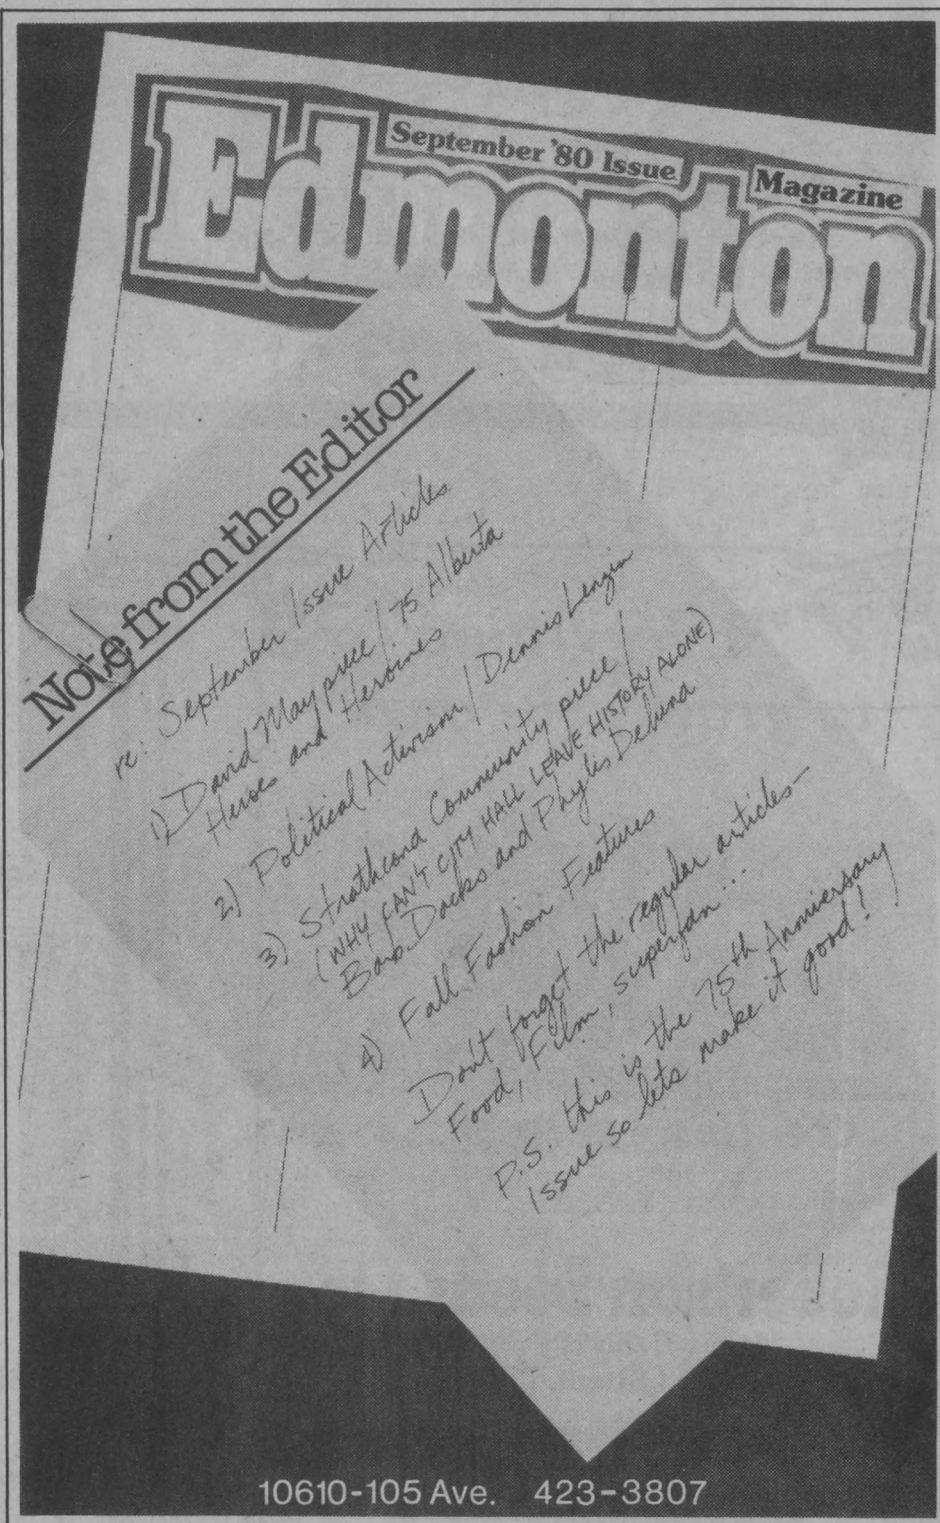 September '80 Issue
Magazine
Edmonton
Note from the Editor
re: September Issue Articles
1) David May piece / 75 Alberta
Heroes and Heroines
2) Political Activism / Dennis Lenzin
3) Strathcona Community piece /
(WHY CAN'T CITY HALL LEAVE HISTORY ALONE)
Barb Dacks and Phylis Deluna
4) Fall Fashion Features
Don't forget the regular articles-
Food, Film, superfan ...
P.S. this is the 75th Anniversary
Issue so lets make it good!
10610-105 Ave. 423-3807